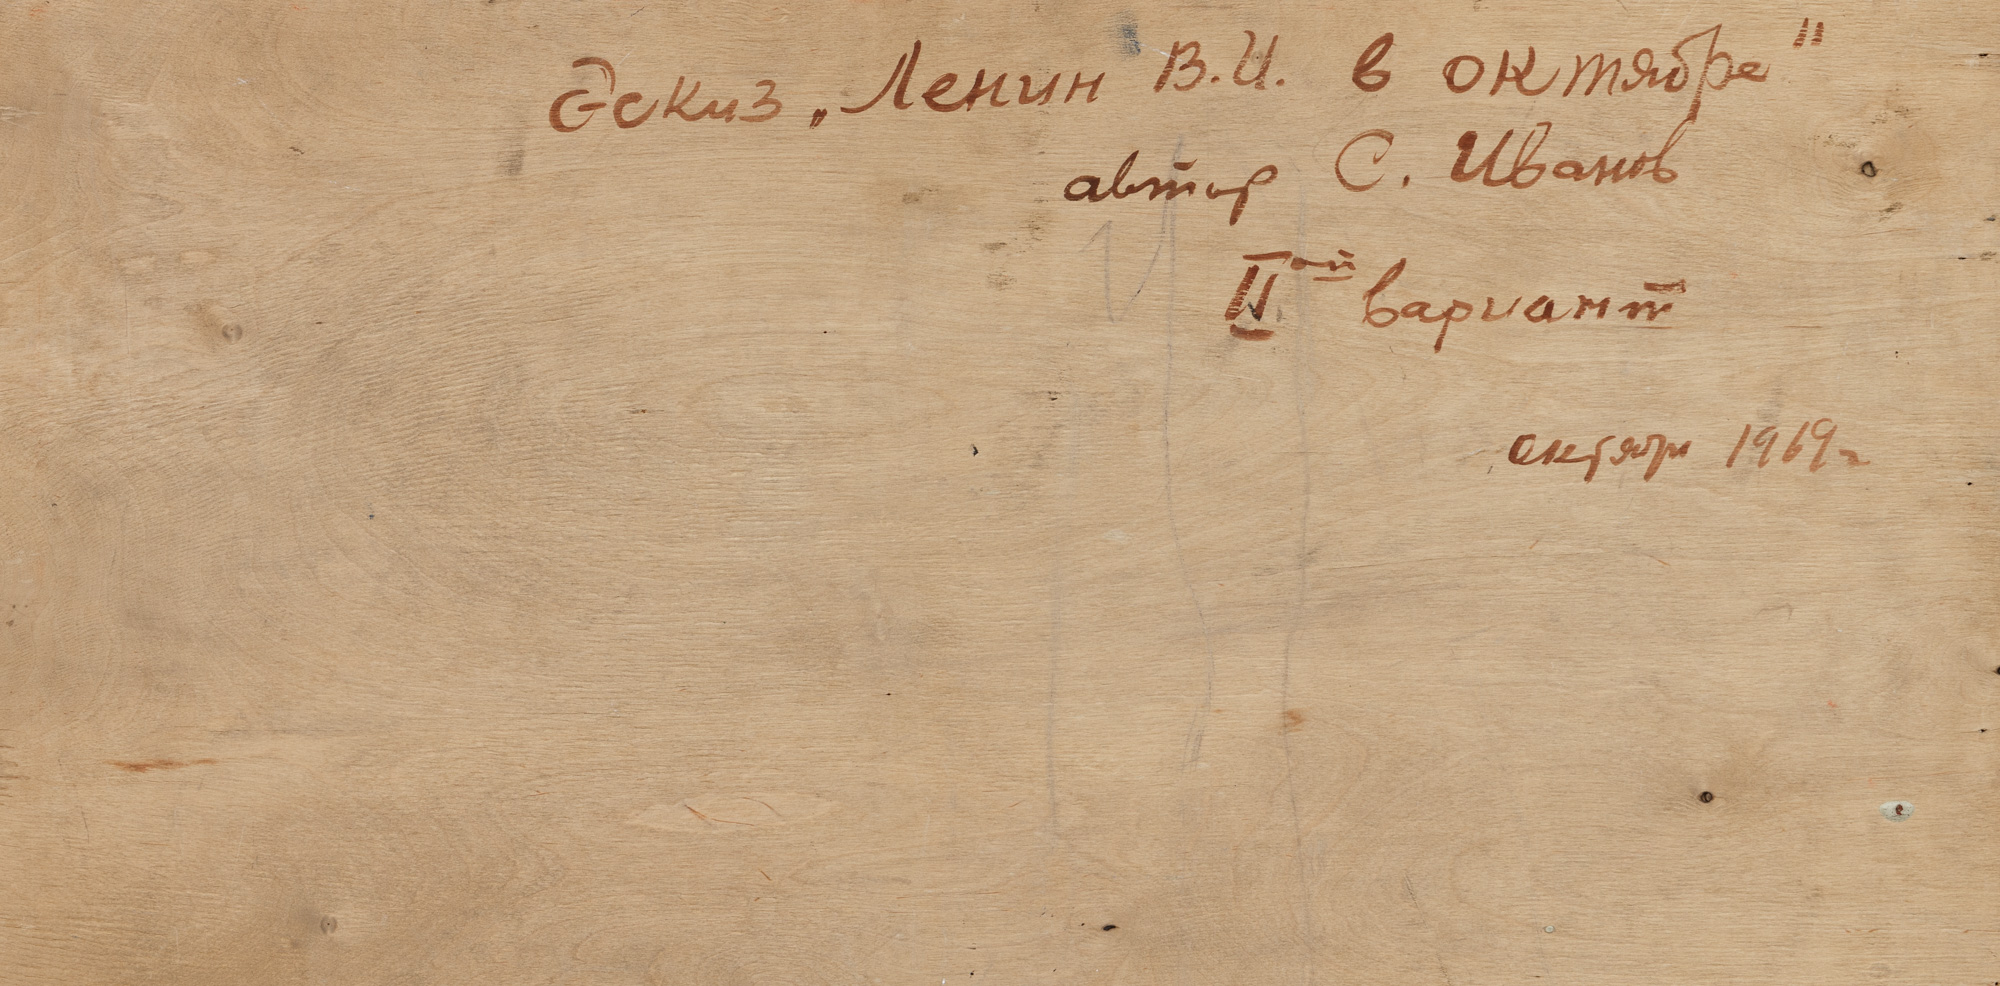 Эскиз „Ленин В.И. в октябре"
автор С. Иванов
IIой вариант
октябрь 1969г